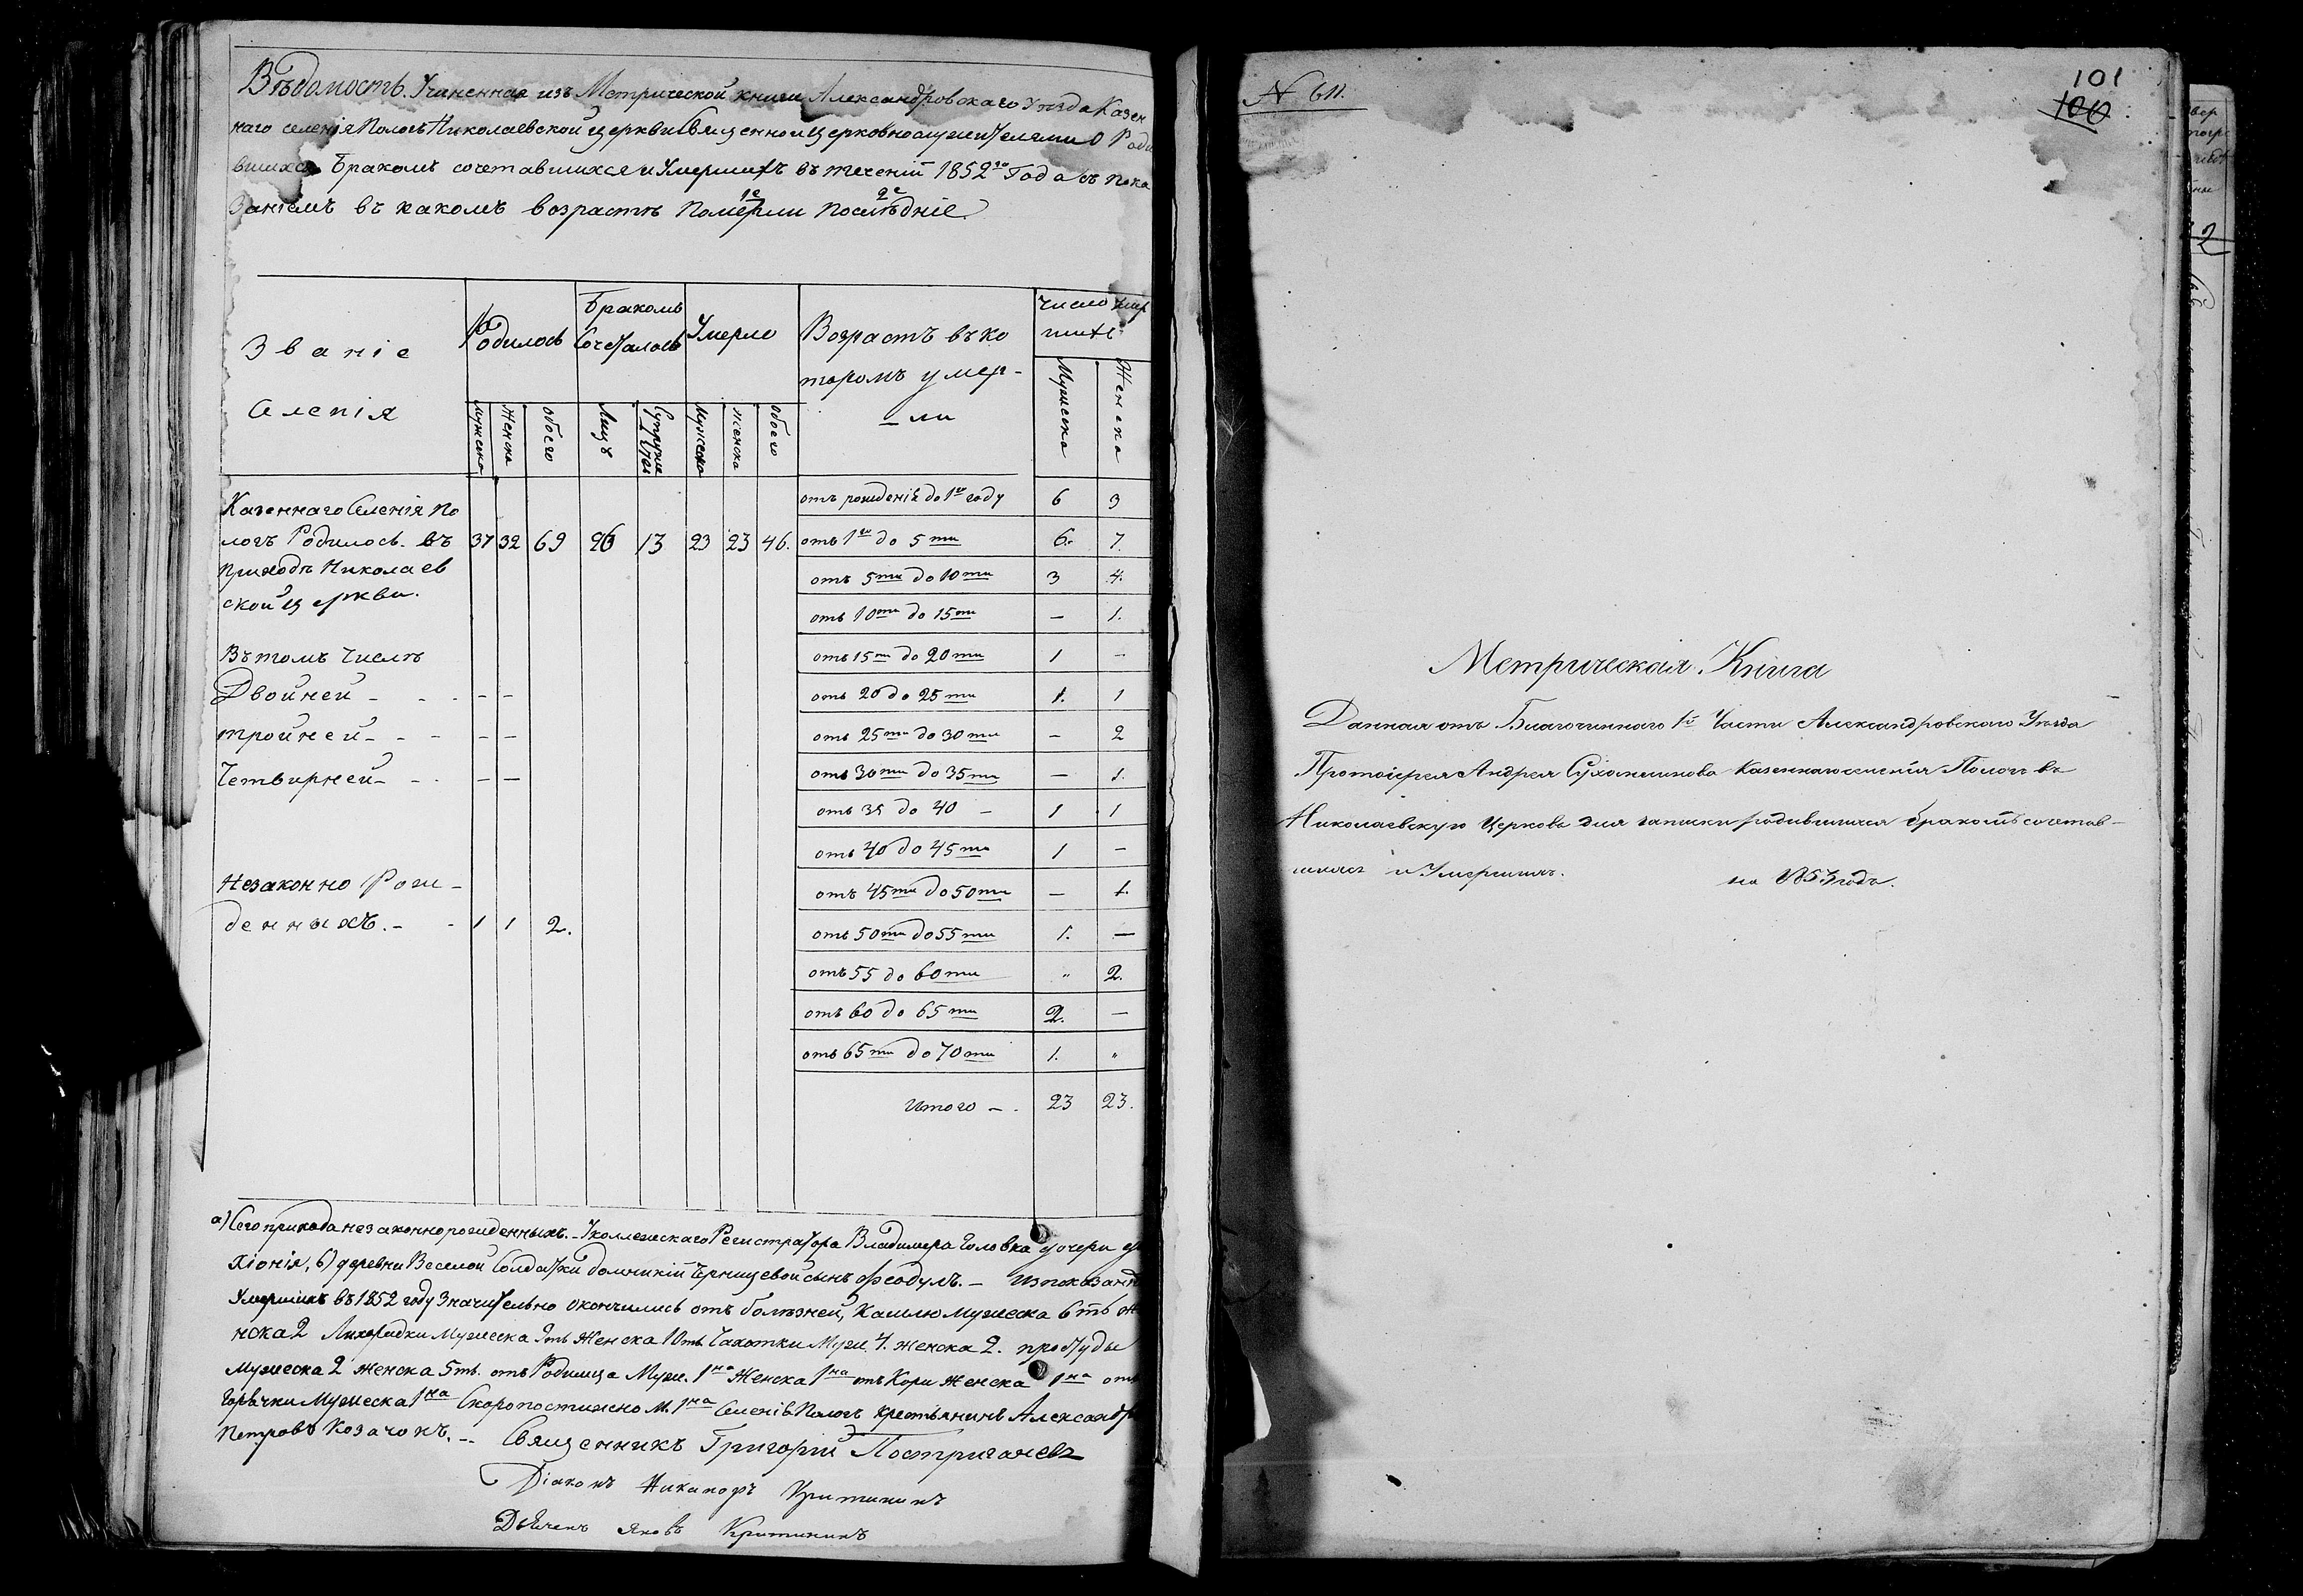 Вѣдомость. Учиненная изъ Метрической книги Александровскаго Уѣзда Казен
наго селенія Пологъ Николаевской церкви Священно и церковнослужителями О Роди
вшихся Бракомъ сочетавшихся и Умершихъ въ теченіи 1852го Года съ пока
заніемъ въ какомъ возрастѣ померли последніе.
1е 2е
Званіе
Селенія
Родилось
Бракомъ
Сочеталось
Умерло
Возрастъ въ ко
торомъ умер-
ли
число умер
шихъ
Мужеска
Женска
обоего
Лицъ
Супруже
ствъ
Мужеска
женска
обоего
Мужеска
Женска
Казеннаго Селенія По
логъ Родилось въ 37 32 69 26 13 23 23 46.
приходѣ Николаев
ской церкви.
Въ томъ числѣ
Двойней - - - - -
тройней - - - - -
Четвирней - - - -
Незаконно Рож-
денныхъ. - - 1 1 2.
отъ рожденія до 1го году 6 3
отъ 1го до 5ти 6. 7.
отъ 5ти до 10ти 3 4.
отъ 10ти до 15ти — 1.
отъ 15ти до 20ти 1 —
отъ 20 до 25ти 1. 1
отъ 25ти до 30ти — 2
отъ 30ти до 35ти — 1.
отъ 35 до 40 — 1 1
отъ 40 до 45ти 1 —
отъ 45ти до 50ти — 1.
отъ 50ти до 55ти 1. —
отъ 55 до 60ти " 2.
отъ 60 до 65ти 2. —
отъ 65ти до 70ти 1. "
Итого —. 23 23.
а) Сего прихода незаконнорожденныхъ. - У коллежскаго Регистратора Владимера Головка дочери
хіонія, б) деревни Веселой Солдатки сынъ Феодулъ. — Изъ показанн
Умершихъ въ 1852 году Значительно окончились отъ болѣзней, Кашлю Мужеска 6ть
нска 2 Лихорадки Мужеска Женска 10ть Чахотки Муж. 4. женска 2. простуды
Мужеска 2 женска 5ть. отъ Родимца Муж. 1на Женска 1на отъ Кори Женска 1на отъ
Горячки Мужеска 1на Скоропостижно М. 1на Селенія Пологъ крестьянинъ Александръ
Петровъ Козачокъ. — Священникъ Григорій Постригачевъ
Діаконъ Никаноръ Критининъ
Дьячекъ Яковъ Критининъ
N 611.
101
100
Метрическая Книга
Данная отъ Благочиннаго 1й Части Александровскаго Уѣзда
Протоіерея Андрея Казеннаго селенія Пологъ въ
Николаевскую Церковь для записки родившихся бракомъ сочетав-
шихся и Умершихъ. на 1853 годъ.